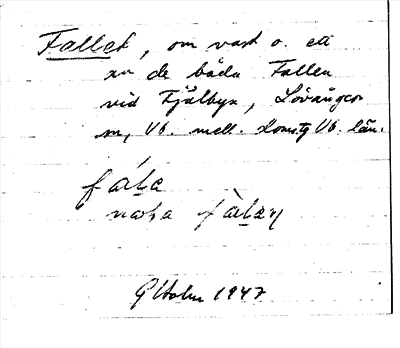 Fallet, om vart o. ett
av de båda Fallen
vid Fjälbyn, Lövångers
sn, Vb. mell. domstg Vb. län.
fàḷa
nǝɷṛa fàḷaɳ
G Holm 1947